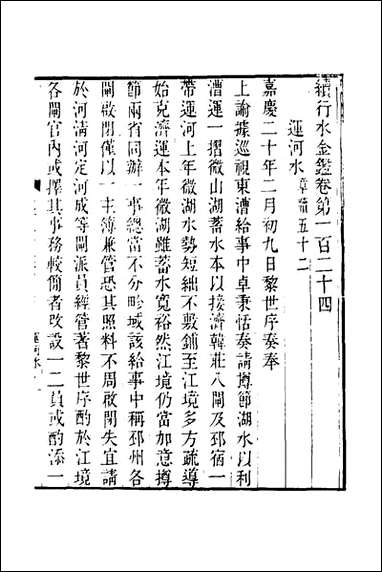 續行水金鑑卷第一百二十四
運河水 章牘五十二
嘉慶二十年二月初九日黎世序奏奉
上諭據巡視東漕給事中卓秉恬奏請撙節湖水以利
漕運一摺微山湖蓄水本以接濟韓莊八閘及邳宿一
帶運河上年微湖水勢短絀不敷鋪至江境多方疏導
始克濟運本年微湖雖蓄水寬裕然江境仍當加意撙
節兩省同辦一事總當不分畛域該給事中稱邳州各
閘啟閉僅以一主簿兼管恐其照料不周啟閉失宜請
於河清河定河成等閘派員經管著黎世序酌於江境
各閘官內或擇其事務較簡者改設一二員或酌添一